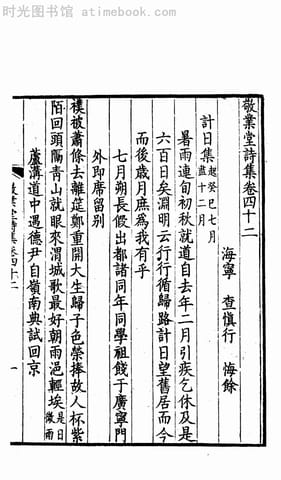 时光图书馆 atimebook.com
敬業堂詩集卷四十二
海寧 查慎行 悔餘
計日集起癸巳七月盡十二月
暑雨連旬初秋就道自去年二月引疾乞休及是
六百日矣淵明云行行循歸路計日望舊居而今
而後歲月庶為我有乎
七月朔長假出都諸同年同學祖餞于廣寧門
外即席留別
襆被蕭條去離筵鄭重開大生歸子色榮捧故人杯紫
陌回頭隔青山就眼來渭城歌最好朝雨浥輕埃是日微雨
蘆溝道中遇德尹自嶺南典試回京
敬業堂詩集卷四十二
一